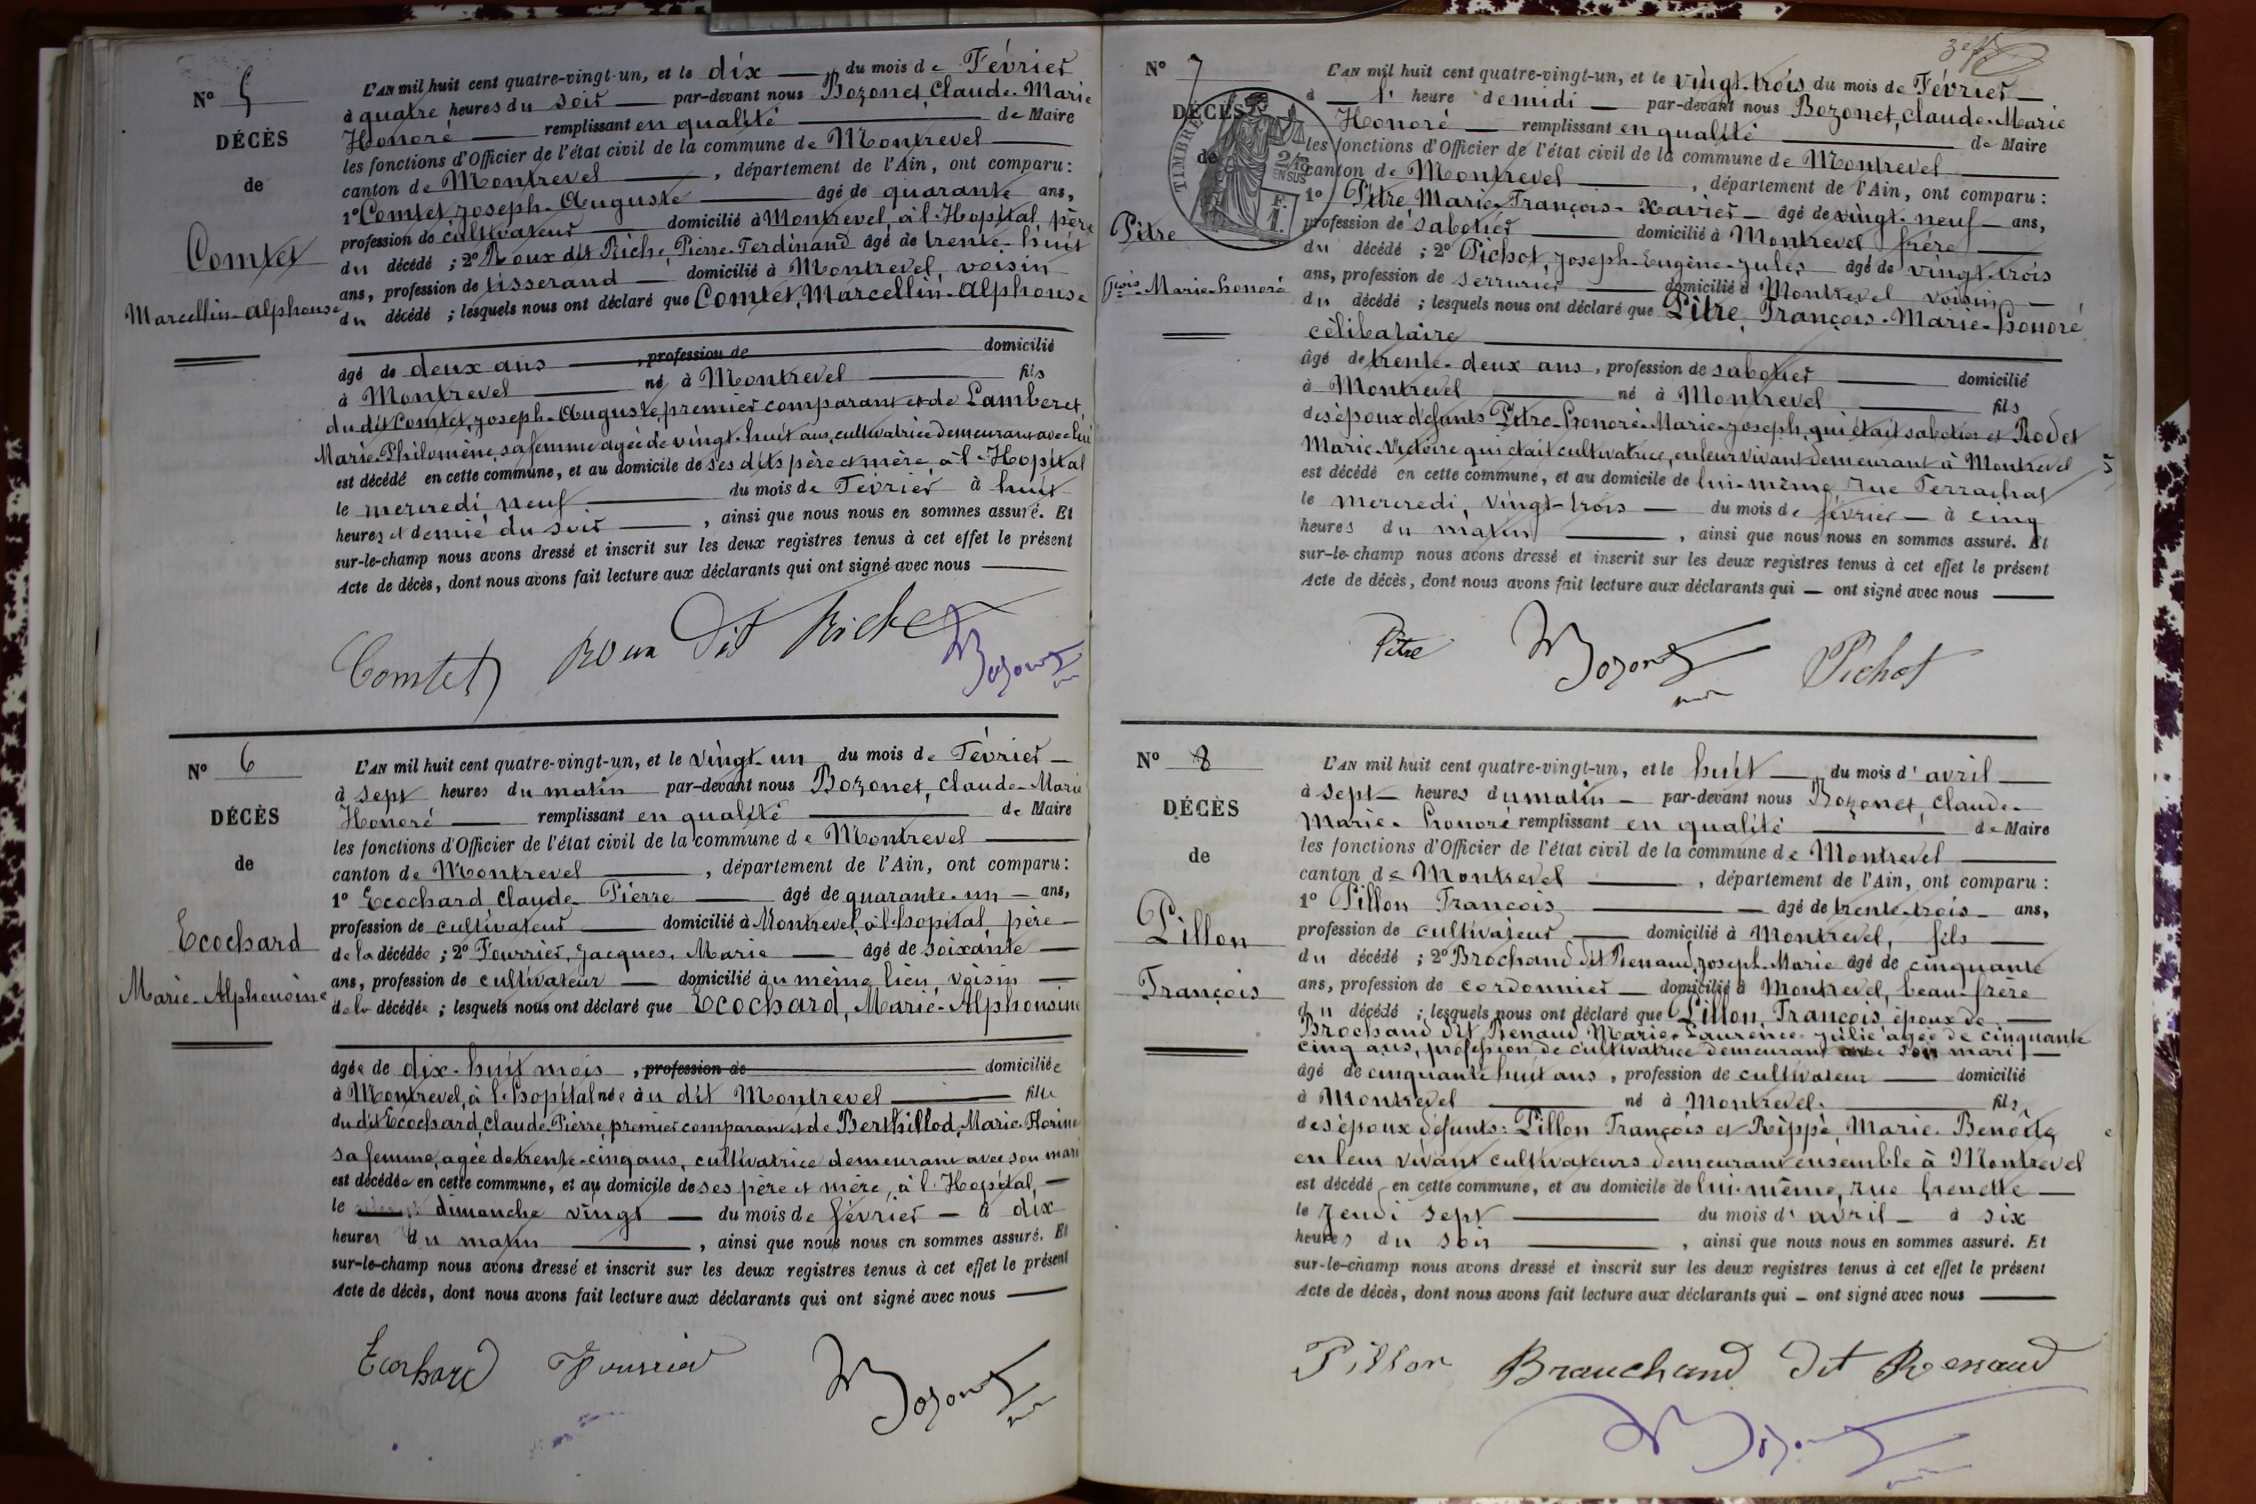 N° 5
DÉCÈS
de
Comtet
Marcellin-Alphonse
L'AN mil huit cent quatre-vingt-un, et le dix du mois de Février
à quatre heures du soir par-devant nous Bozonet, Claude-Marie
Honoré remplissant en qualité de Maire
les fonctions d'Officier de l'état civil de la commune de Montrevel
canton de Montrevel, département de l'Ain, ont comparu:
1° Comtet, Joseph-Auguste âgé de quarante ans,
profession de cultivateur domicilié à Montrevel, à l'Hopital, père
du décédé; 2° Roux dit Riche, Pierre-Ferdinand âgé de trente-huit
ans, profession de tisserand domicilié à Montrevel, voisin
du décédé; lesquels nous ont déclaré que Comtet, Marcellin-Alphonse
âgé de deux ans, profession de domicilié
à Montrevel né à Montrevel fils
du dit Comtet, Joseph-Auguste, premier comparant et de Lamberet,
Marie-Philomène, sa femme agée de vingt-huit ans, cultivatrice demeurant avec lui
est décédé en cette commune, et au domicile de ses dits père et mère, à l'Hopital
le mercredi neuf du mois de Février à huit
heures et demie du soir, ainsi que nous nous en sommes assuré. Et
sur-le-champ nous avons dressé et inscrit sur les deux registres tenus à cet effet le présent
Acte de décès, dont nous avons fait lecture aux déclarants qui ont signé avec nous
Comtet Roux Dit Riche Bozonet
N° 6
DÉCÈS
de
Ecochard
Marie-Alphonsine
L'AN mil huit cent quatre-vingt-un, et le vingt-un du mois de Février
à sept heures du matin par-devant nous Bozonet, Claude-Marie
Honoré remplissant en qualité de Maire
les fonctions d'Officier de l'état civil de la commune de Montrevel
canton de Montrevel, département de l'Ain, ont comparu:
1° Ecochard Claude-Pierre âgé de quarante-un ans,
profession de cultivateur domicilié à Montrevel, à l'hopital, père
de la décédée; 2° Fourrier, Jacques, Marie âgé de soixante
ans, profession de cultivateur domicilié au même lieu, voisin
de la décédée; lesquels nous ont déclaré que Ecochard, Marie-Alphonsine
âgée de dix-huit mois, profession de domiciliée
à Montrevel, à l'hopital née au dit Montrevel fille
du dit Ecochard, Claude-Pierre, premier comparant et de Berthillod, Marie-Florine
sa femme, agée de trente-cinq ans, cultivatrice demeurant avec son mari
est décédée en cette commune, et au domicile de ses père et mère, à l'Hopital,
le dimanche vingt du mois de février à dix
heures du matin, ainsi que nous nous en sommes assuré. Et
sur-le-champ nous avons dressé et inscrit sur les deux registres tenus à cet effet le présent
Acte de décès, dont nous avons fait lecture aux déclarants qui ont signé avec nous
Ecochard Fourrier Bozonet
N° 7
DÉCÈS
de
TIMBRE
2/10 EN SUS
F. 1.
Pitre
çois-Marie-honoré
L'AN mil huit cent quatre-vingt-un, et le vingt-trois du mois de Février
à 1' heure de midi par-devant nous Bozonet, Claude-Marie
Honoré remplissant en qualité de Maire
les fonctions d'Officier de l'état civil de la commune de Montrevel
canton de Montrevel, département de l'Ain, ont comparu:
1° Pitre Marie-François-Xavier âgé de vingt-neuf ans,
profession de sabotier domicilié à Montrevel frère
du décédé; 2° Pichot, Joseph-Eugène-Jules âgé de vingt-trois
ans, profession de serrurier domicilié à Montrevel voisin
du décédé; lesquels nous ont déclaré que Pitre, François-Marie-honoré
célibataire
âgé de trente-deux ans, profession de sabotier domicilié
à Montrevel né à Montrevel fils
des époux défunts Pitre-honoré-Marie-Joseph, qui était sabotier et Rodet
Marie-Victoire qui était cultivatrice, en leur vivant demeurant à Montrevel
est décédé en cette commune, et au domicile de lui-même, rue Ferrachat
le mercredi, vingt-trois du mois de février à cinq
heures du matin, ainsi que nous nous en sommes assuré. Et
sur-le-champ nous avons dressé et inscrit sur les deux registres tenus à cet effet le présent
Acte de décès, dont nous avons fait lecture aux déclarants qui ont signé avec nous
Pitre Bozonet Pichot
N° 8
DÉCÈS
de
Pillon
François
L'AN mil huit cent quatre-vingt-un, et le huit du mois d'avril
à sept heures du matin par-devant nous Bozonet, Claude-
Marie-honoré remplissant en qualité de Maire
les fonctions d'Officier de l'état civil de la commune de Montrevel
canton de Montrevel, département de l'Ain, ont comparu:
1° Pillon François âgé de trente-trois ans,
profession de cultivateur domicilié à Montrevel, fils
du décédé; 2° Brochand dit Renaud, Joseph-Marie âgé de cinquante
ans, profession de cordonnier domicilié à Montrevel, beau-frère
du décédé; lesquels nous ont déclaré que Pillon, François époux de
Brochand dit Renaud Marie-Laurence-Julie agée de cinquante
cinq ans, profession de cultivatrice demeurant avec son mari
âgé de cinquante huit ans, profession de cultivateur domicilié
à Montrevel né à Montrevel. fils
des époux défunts: Pillon François et Rippe, Marie-Benoîte,
en leur vivant cultivateurs demeurant ensemble à Montrevel
est décédé en cette commune, et au domicile de lui-même, rue Grenette
le Jeudi sept du mois d'avril à six
heures du soir, ainsi que nous nous en sommes assuré. Et
sur-le-champ nous avons dressé et inscrit sur les deux registres tenus à cet effet le présent
Acte de décès, dont nous avons fait lecture aux déclarants qui ont signé avec nous
Pillon Brauchand Dit Renaud
Bozonet